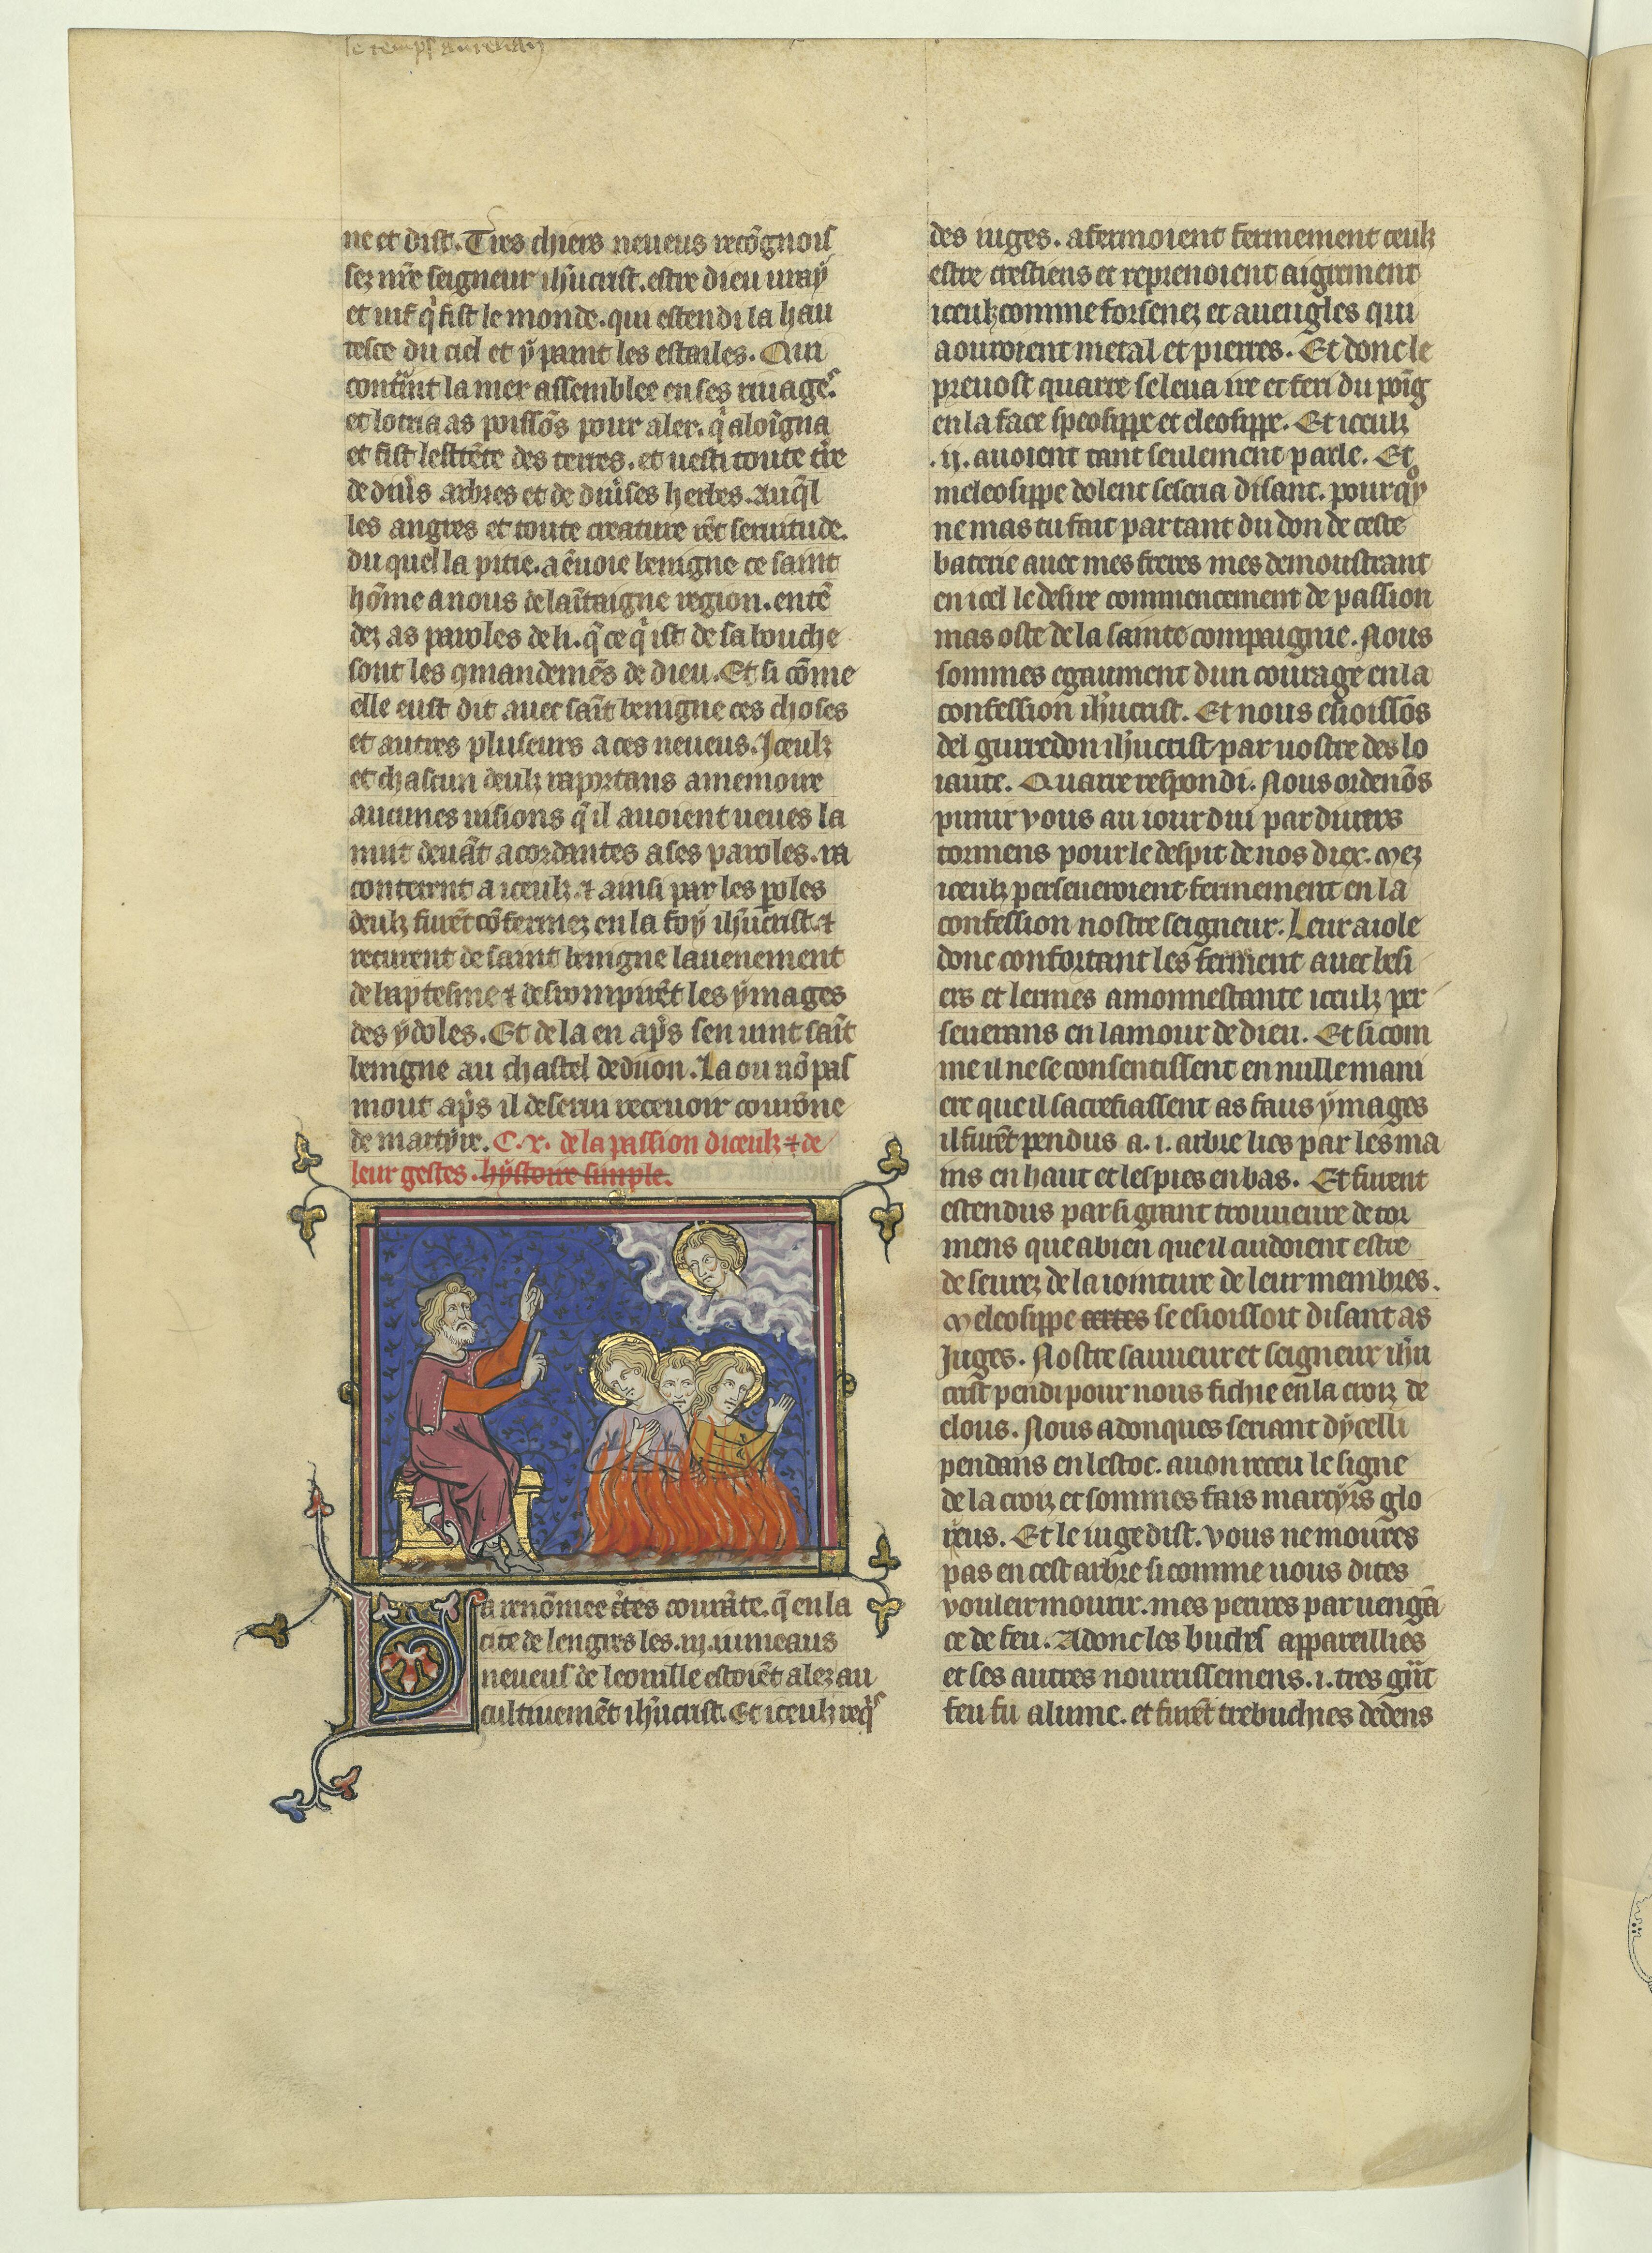 le temps aurelian
ne et dist. Tres chiers neueus recõgnois
sez nr̃e seigneur ihũcrist. estre dieu uray
et uif q̉ fist le monde. qui estendi la hau
tesce du ciel et ẏ paint les estoiles. Qui
contĩnt la mer assemblee en ses riuages.
et lotria as poissõs pour aler. q̉ aloĩgna
et fist lestẽte des terres. et uesti toute tr̃e
de diũs arbres et de diũses herbes. Auq̃l
les angres et toute creature rẽt seruitude.
du quel la pitie. a ẽuoie benigne ce saint
hõme a nous de laĩtaigne region. entẽ
dez as paroles de li. q̃ ce q̉ ist de sa bouche
sont les ꝯmandemẽs de dieu. Et si cõme
elle eust dit auec saĩt benigne ces choses
et autres pluseurs a ces neueus. Iceulz
et chascun deulz raportans a memoire
aucunes uisions q̃ il auoient ueues la
nuit deuãt acordantes a ses paroles. ra
conterent a iceulz. ⁊ ainsi par les ꝑoles
deulz furẽt cõfermez en la foẏ ihũcrist. ⁊
recurent de saint benigne lauenement
de baptesme ⁊ desrompirẽt les ẏmages
des ẏdoles. Et de la en ap̃s sen uint saĩt
benigne au chastel de diion. La ou nõ pas
mout ap̃s il deserui receuoir courõne
de martẏre. C. x. de la passion diceulz ⁊ de
leur gestes. hẏstoire simple.
La renõmee c̃tes courãte. q̃ en la
cite de lengres les .iij. iumeaus
neueus de leonille estoiẽt alez au
cultiuemẽt ihũcrist. Et iceulz req̉s
des iuges. afermoient fermement ceulz
estre crestiens et reprenoient aigrement
iceulz comme forsenez et aueugles qui
aouroient metal et pierres. Et donc le
preuost quarre se leua ire et feri du poĩg
en la face speosippe et eleosippe. Et iceulz
.ij. auoient tant seulement parle. Et
meleosippe dolent sescria disant. pourqoy
ne mas tu fait partant du don de ceste
baterie auec mes freres mes demonstrant
en icel le desire commencement de passion
mas oste de la sainte compaignie. Nous
sommes egaument dun courage en la
confession ihũcrist. Et nous esioissõs
del guerredon ihũcrist par uostre deslo
iaute. Quarre respondi. Nous ordenõs
punir vous au iourdui par diuers
tormens pour le despit de nos diex. Mez
iceulz perseueroient fermement en la
confession nostre seigneur. Leur aiole
donc confortant les ferment auec besi
ers et lermes amonnestante iceulz per
seuerans en lamour de dieu. Et si com
me il ne se consentissent en nulle mani
ere que il sacrefiassent as faus ẏmages
il furẽt pendus a .i. arbre lies par les ma
ins en haut et les pies en bas. Et furent
estendus par si grant trouueure de tor
mens que a bien que il cuidoient estre
deseurez de la iointure de leur membres.
Meleosippe certes se esioissoit disant as
Iuges. Nostre sauueur et seigneur ihũ
crist pendi pour nous fichie en la croiz de
clous. Nous adonques seriant dẏcelli
pendans en lestoc. auon receu le signe
de la croiz et sommes fais martẏrs glo
rieus. Et le iuge dist. Vous ne moures
pas en cest arbre si comme uous dites
vouleir mourir. mes perires par uengã
ce de feu. Adonc les buches appareillies
et ses autres nourrissemens .i. tres grãt
feu fu alume. et furẽt trebuchies dedens